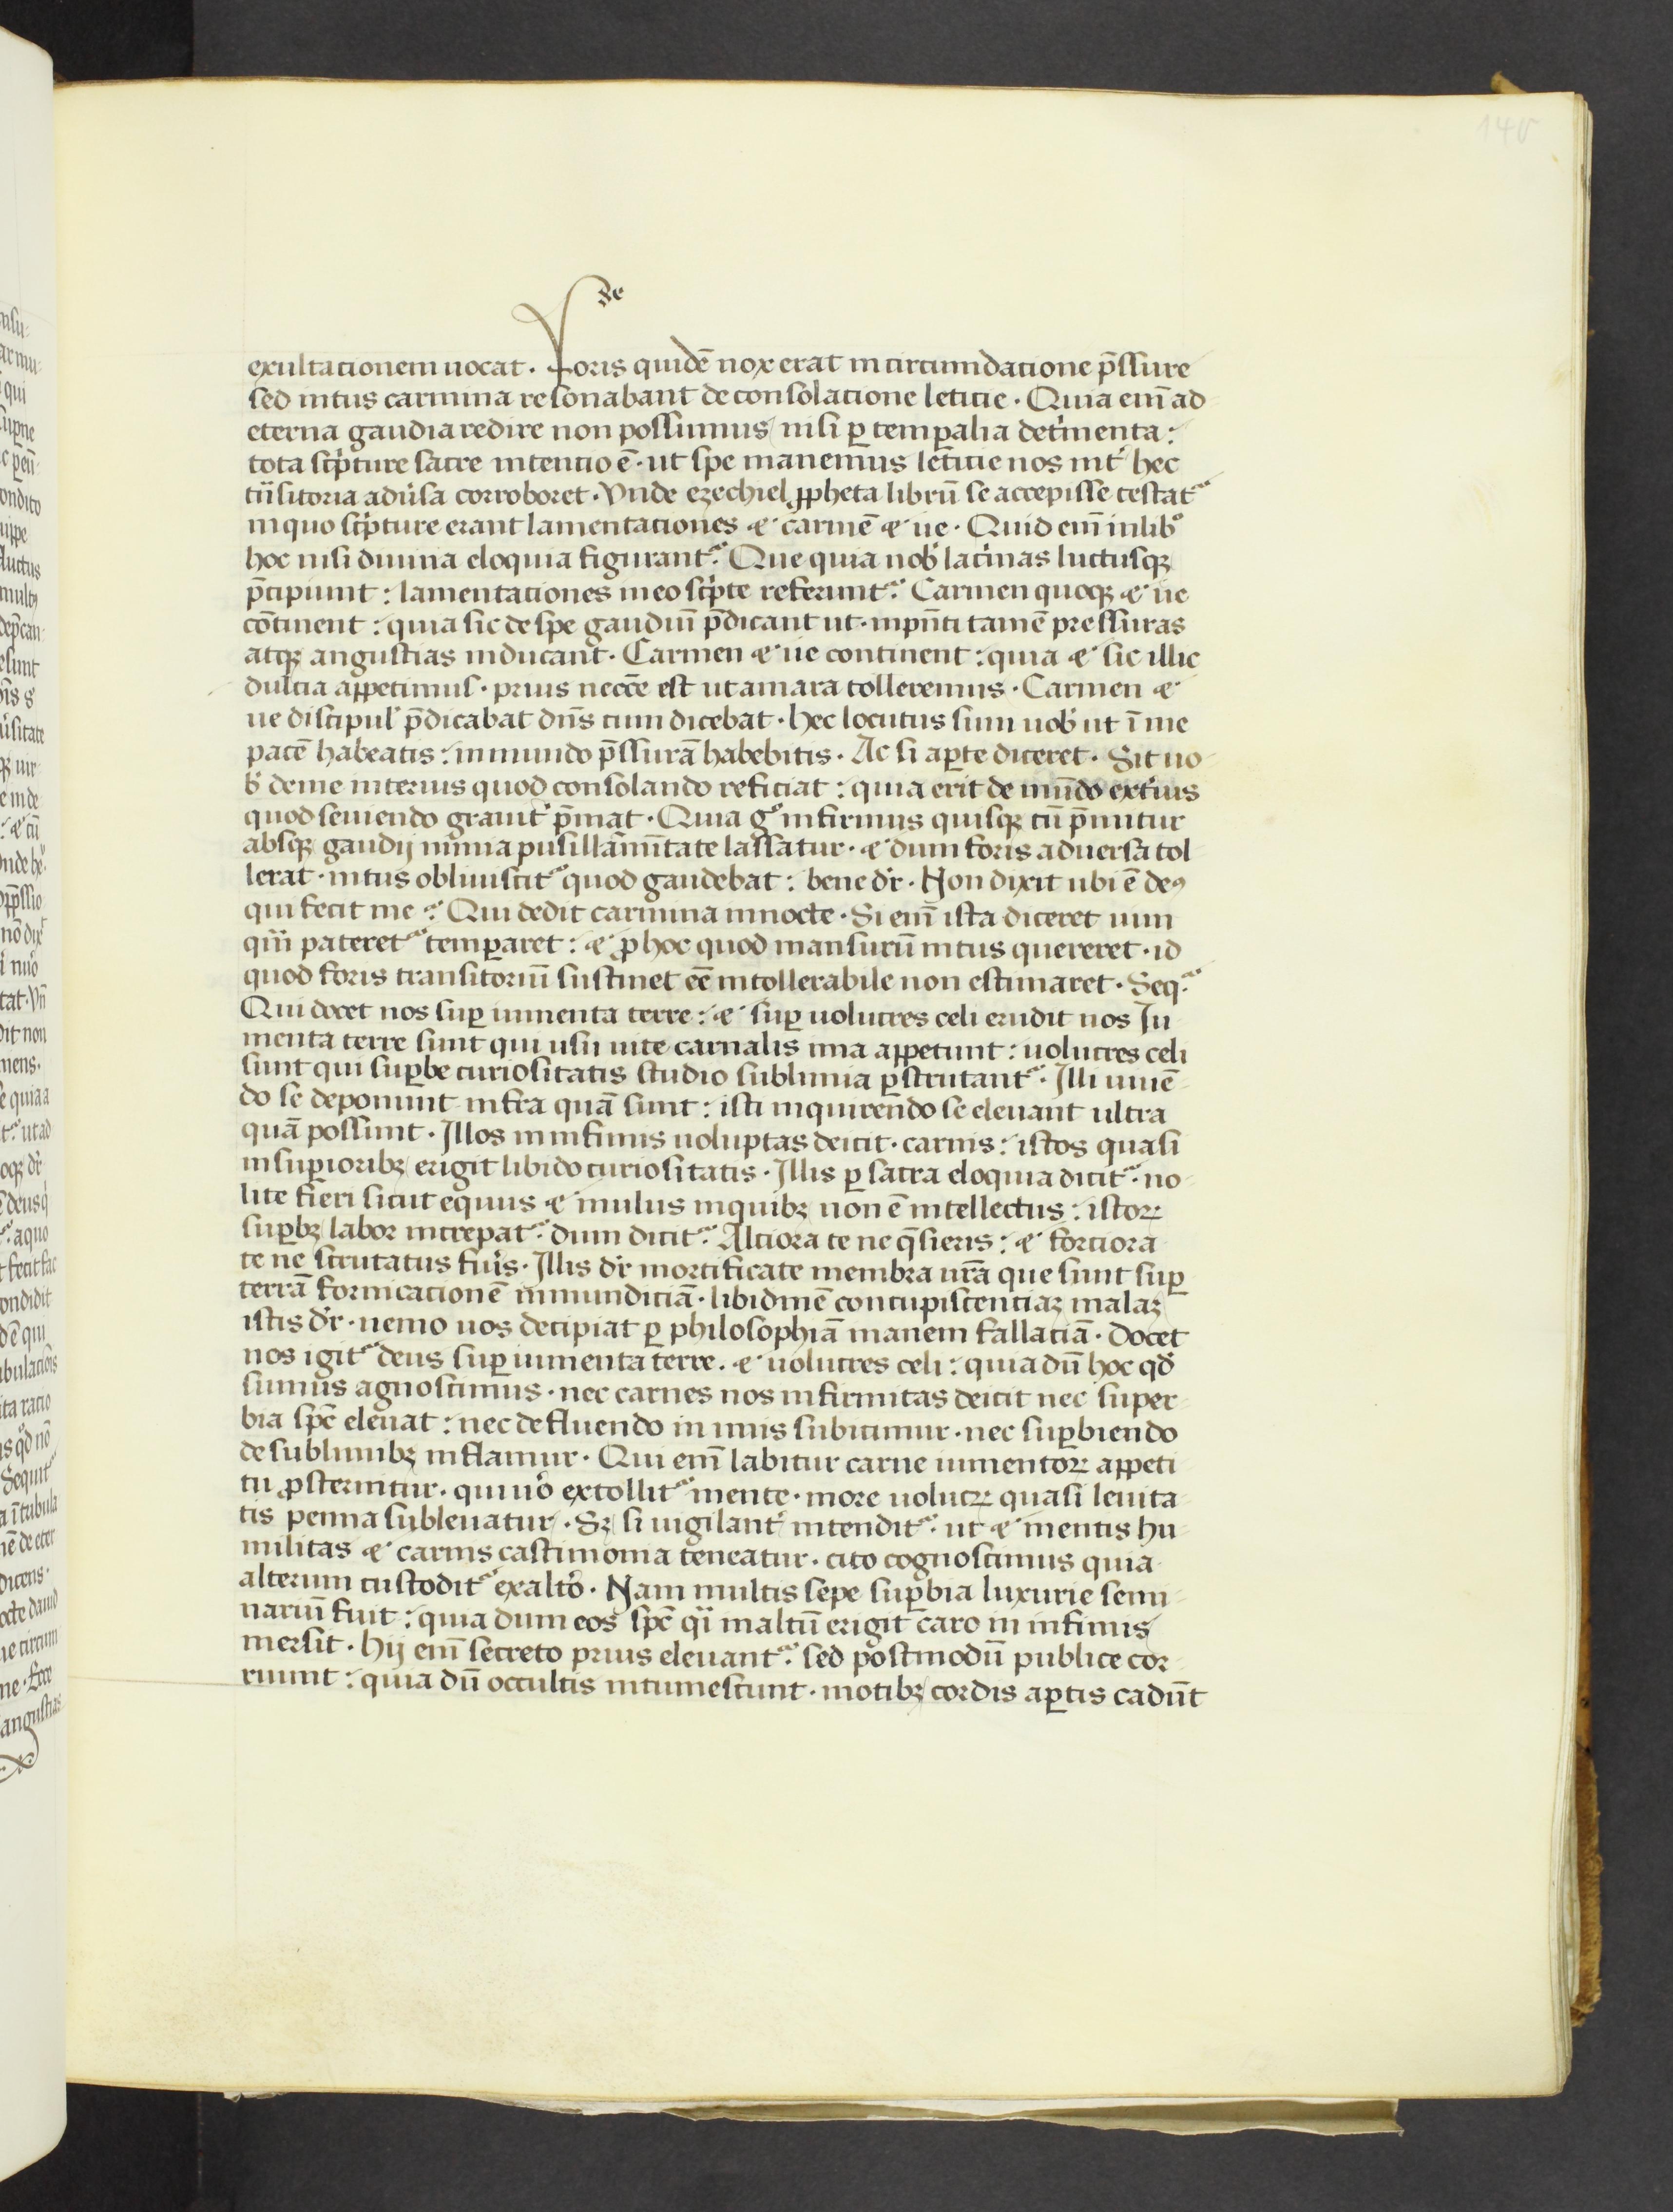 140
de
exultacionem uocat · Foris quidē nox erat in circumdacione p̄ssure
sed intus carmina resonabant de consolacione leticie · Quia eni̅ ad
eterna gaudia redire non possumus nisi ꝑ temꝑalia det͛menta :
tota sc͛pture sacre intencio ē · ut spe manentis leticie nos int͛ hec
tͣnsitoria adu͛sa corroboret · Vnde ezechiel ꝓpheta librū se accepisse testatᷣ
in quo sc͛pture erant lamentaciones ⁊ carmē ⁊ ue · Quid eni̅ in libͦ
hoc nisi diuina eloquia figurantᷣ · Que quia nob͛ lac͛mas luctusqꝫ
p̄cipiunt : lamentaciones in eo sc͛pte referuntᷣ · Carmen quoqꝫ ⁊ ue
cōtinent : quia sic de spe gaudiū p̄dicant ut · in pn̄ti tamē pressuras
atqꝫ angustias inducant · Carmen ⁊ ue continent : quia ⁊ sic illic
dulcia appetimus · prius necc̄e est ut amara tolleremus · Carmen ⁊
ue discipul͛ p̄dicabat dn̄s cum dicebat · hec locutus sum uob͛ ut ī me
pacē habeatis : in mundo p̄ssurā habebitis · Ac si aꝑte diceret · Sit uo
b͛ de me interius quod consolando reficiat : quia erit de mūdo ext͛ius
quod seuiendo grauit͛ p̄mat · Quia gͦ infirmus quisqꝫ cū p̄mitur
absqꝫ gaudij nimia pusillāmitate lassatur · ⁊ dum foris aduersa tol
lerat · intus obliuiscitᷣ quod gaudebat : bene dr̄ · Non dixit ubi ē deꝯ
qui fecit me · Qui dedit carmina in nocte · Si eni̅ ista diceret uim
quā pateretᷣ temꝑaret : ⁊ ꝓ hoc quod mansurū intus quereret · id
quod foris transitoriū sustinet ēe intollerabile non estimaret · Seqᷣ ·
Qui docet nos suꝑ iumenta terre : ⁊ suꝑ uolucres celi erudit nos Iu
menta terre sunt qui usu uite carnalis ima appetunt : uolucres celi
sunt qui suꝑbe curiositatis studio sublimia ꝑscrutantᷣ · Illi uiuē
do se deponunt infra quā sunt : isti inquirendo se eleuant ultra
quā possunt · Illos in infimis uoluptas deicit · carnis : istos quasi
in suꝑioribꝫ erigit libido curiositatis · Illis ꝑ sacra eloquia dicitᷣ · no
lite fieri sicut equus ⁊ mulus in quibꝫ non ē intellectus : istoꝝ
suꝑbꝫ labor increpatᷣ · dum dicitᷣ · Alciora te ne q̄sieris : ⁊ forciora
te ne scrutatus fu͛is · Illis dr̄ mortificate membra ur̄a que sunt suꝑ
terrā fornicacionē inmundiciā · libidinē concupiscenciaꝫ malaꝫ
istis dr̄ · nemo uos decipiat ꝑ philosophiā inanem fallaciā · docet
nos igitᷣ deus suꝑ iumenta terre · ⁊ uolucres celi : quia dū hoc qd̄
sumus agnoscimus · nec carnes nos infirmitas deicit nec super
bia spc̄ eleuat : nec defluendo in imis subicimur · nec suꝑbiendo
de sublimibꝫ inflamur · Qui eni̅ labitur carne iumentoꝝ appeti
tu ꝓsternitur · qui uͦ extollitᷣ mente · more uolucꝝ quasi leuita
tis penna subleuatur · Sꝫ si uigilant͛ intenditᷣ · ut ⁊ mentis hu
militas ⁊ carnis castimonia teneatur · cito cognoscimus quia
alterum custoditᷣ ex altͦo · Nam multis sepe suꝑbia luxurie semi
nariū fuit : quia dum eos spc̄ qͣsi in altū erigit caro in infimis
mersit · Hij eni̅ secreto prius eleuantᷣ · sed postmodū publice cor
ruunt : quia dū occultis intumescunt · motibꝫ cordis aꝑtis cadūt